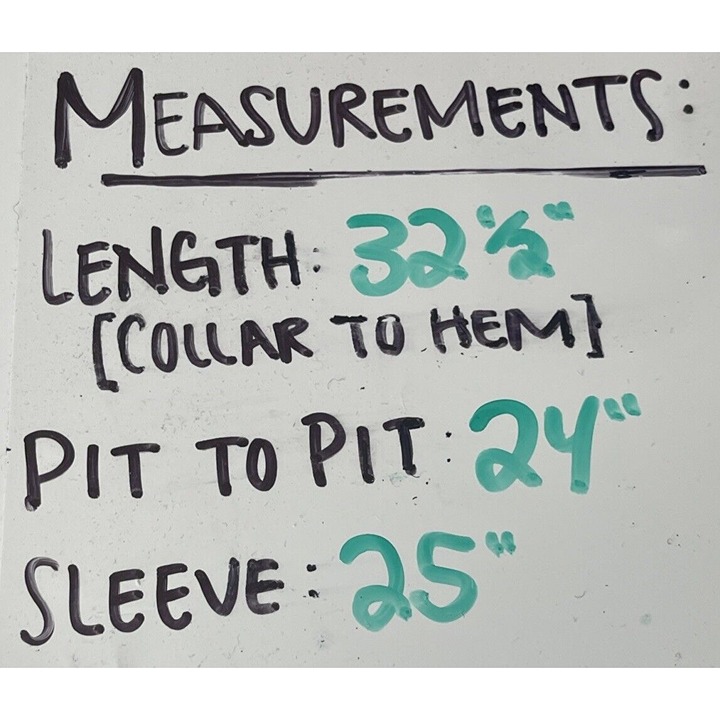 MEASUREMENTS:
LENGTH: 32 ½"
[COLLAR TO HEM]
PIT TO PIT: 24"
SLEEVE: 25"